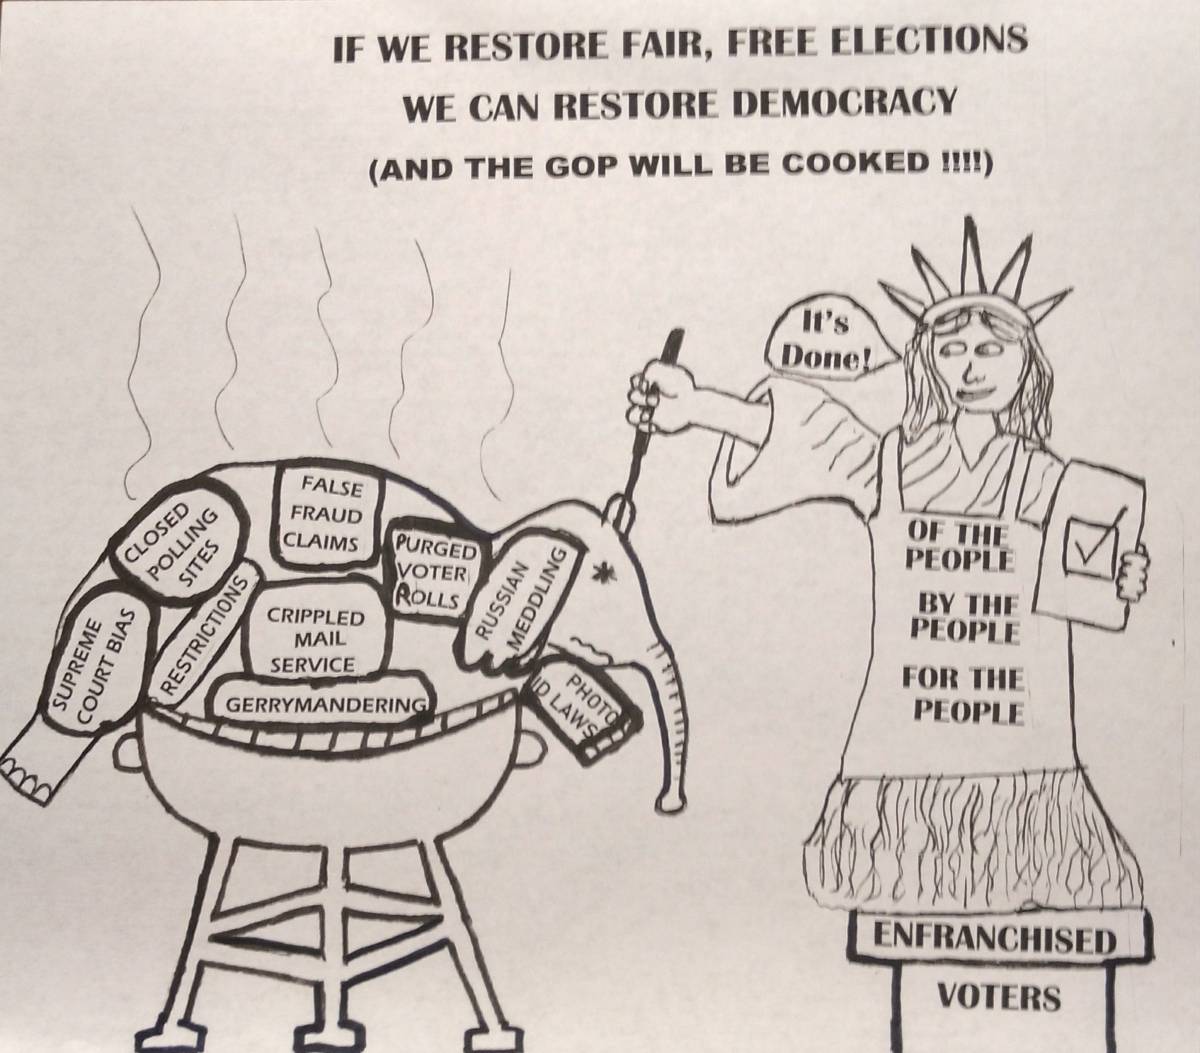 IF WE RESTORE FAIR, FREE ELECTIONS
WE CAN RESTORE DEMOCRACY
(AND THE GOP WILL BE COOKED !!!!)
It's
Done!
FALSE
FRAUD
CLAIMS
CLOSED
POLLING
SITES
PURGED
VOTER
ROLLS
RUSSIAN
MEDDLING
SUPREME
COURT BIAS
RESTRICTIONS
CRIPPLED
MAIL
SERVICE
GERRYMANDERING
PHOTO
ID LAWS
OF THE
PEOPLE
BY THE
PEOPLE
FOR THE
PEOPLE
ENFRANCHISED
VOTERS